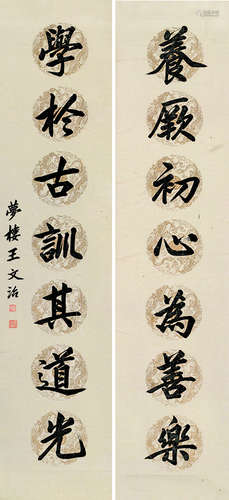 養厥初心為善樂
學於古訓其道光
夢樓王文治